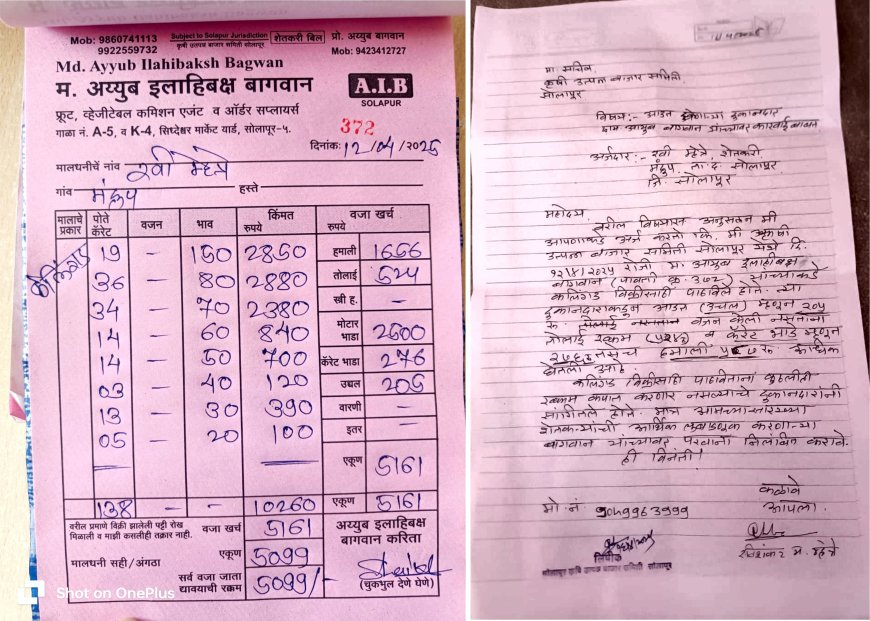 Mob: 9860741113
9922559732
Subject to Solapur Jurisdiction
कृषी उत्पन्न बाजार समिती सोलापूर
शेतकरी बिल
प्रो. अय्युब बागवान
Mob: 9423412727
Md. Ayyub Ilahibaksh Bagwan
म. अय्युब इलाहिबक्ष बागवान
A.I.B
SOLAPUR
फ्रूट, व्हेजीटेबल कमिशन एजंट व ऑर्डर सप्लायर्स
गाळा नं. A-5, व K-4, सिध्देश्वर मार्केट यार्ड, सोलापूर-५.
372
दिनांक: 12/04/2025
मालधनीचें नांव रवी म्हेत्रे
गांव मंद्रुप हस्ते
मालाचे प्रकार पोते कॅरेट वजन भाव किंमत रुपये वजा खर्च रुपये
कलिंगड 19 - 150 2850 हमाली 1656
36 - 80 2880 तोलाई 524
34 - 70 2380 स्त्री ह. -
14 - 60 840 मोटार भाडा 2500
14 - 50 700 कॅरेट भाडा 276
03 - 40 120 उचल 205
13 - 30 390 वारणी -
05 - 20 100 इतर -
एकूण 5161
138 - - 10260 एकूण 5161
वरील प्रमाणे विक्री झालेली पट्टी रोख मिळाली व माझी कसलीही तक्रार नाही.
वजा खर्च 5161
एकूण 5099
मालधनी सही/अंगठा
सर्व वजा जाता द्यावयाची रक्कम 5099/-
अय्युब इलाहिबक्ष
बागवान करिता
(चुकभुल देणे घेणे)
Shot on OnePlus
मा. सचिव
कृषी उत्पन्न बाजार समिती
सोलापूर
विषय:- आडत दुकानदार
बागवान यांच्यावर कारवाई बाबत
अर्जदार :- रवी म्हेत्रे, शेतकरी
मंद्रुप ता. द. सोलापूर
जि. सोलापूर
महोदय,
वरील विषयास अनुसरून मी
आपणाकडे अर्ज करतो कि, मी कृषी
उत्पन्न बाजार समिती सोलापूर येथे दि.
१२/४/२०२५ रोजी मा. आयुब इलाहीबक्ष
बागवान (पावती क्र. ३७२) यांच्याकडे
कलिंगड विक्रीसाठी पाठविले होते. त्या
दुकानदाराकडून (उचल) म्हणून २०५
रु. वजन केली नसताना
तोलाई रक्कम (५२४) व कॅरेट भाडे म्हणून
तसेच हमाली रु अधिक
घेतला आहे
कलिंगड विक्रीसाठी पाठविताना कुठलीही
रक्कम कपात करणार नसल्याचे दुकानदारांनी
सांगितले होते. मात्र आमच्यासारख्या
शेतकऱ्यांची आर्थिक लुबाडणूक करणाऱ्या
बागवान यांच्यावर परवाना निलंबित करावे.
ही विनंती!
कळावे
आपला.
मो. नं 9049963999
लिपीक
सोलापूर कृषि उत्पन्न बाजार समिती सोलापूर
म. म्हेत्रे